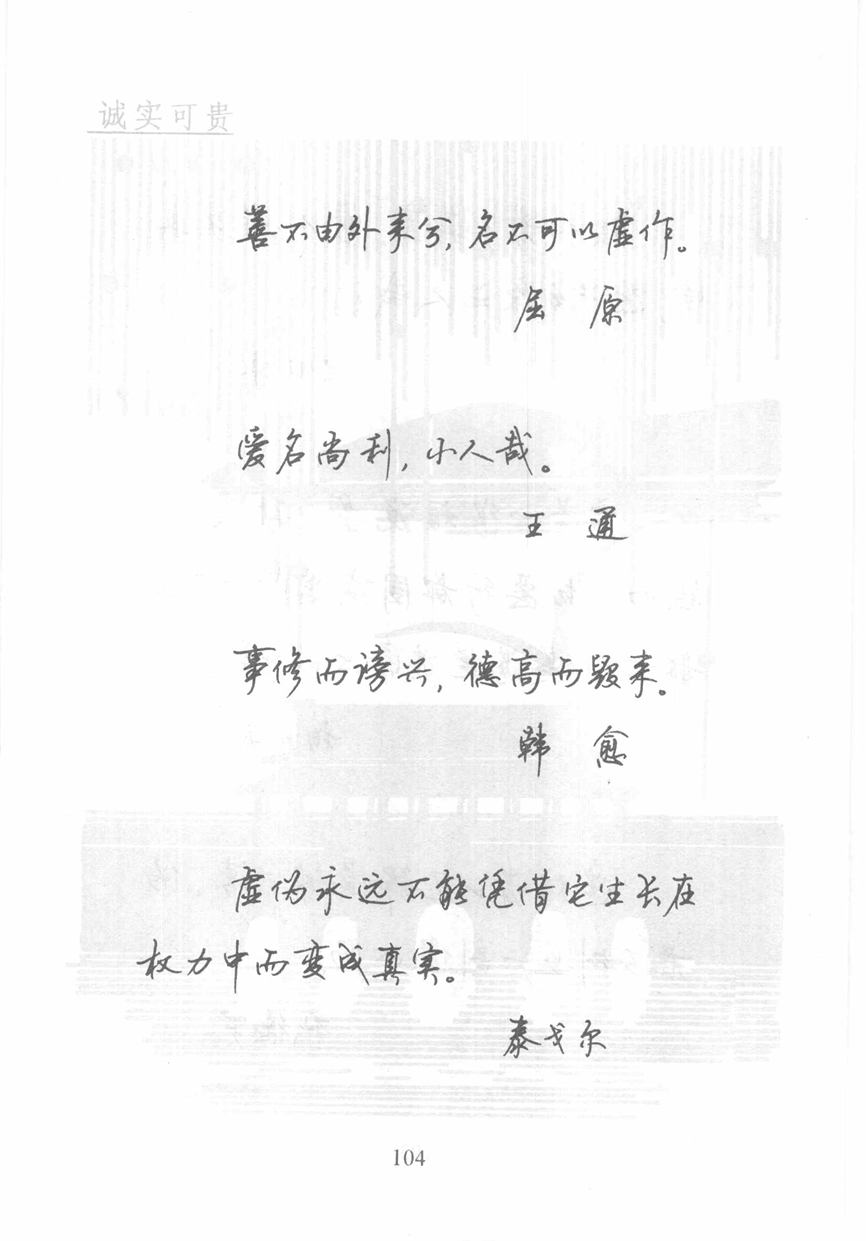 诚实可贵
善不由外来兮,名不可以虚作。
屈 原
爱名尚利,小人哉。
王 通
事修而谤兴,德高而毁来。
韩 愈
虚伪永远不能凭借它生长在
权力中而变成真实。
泰戈尔
104